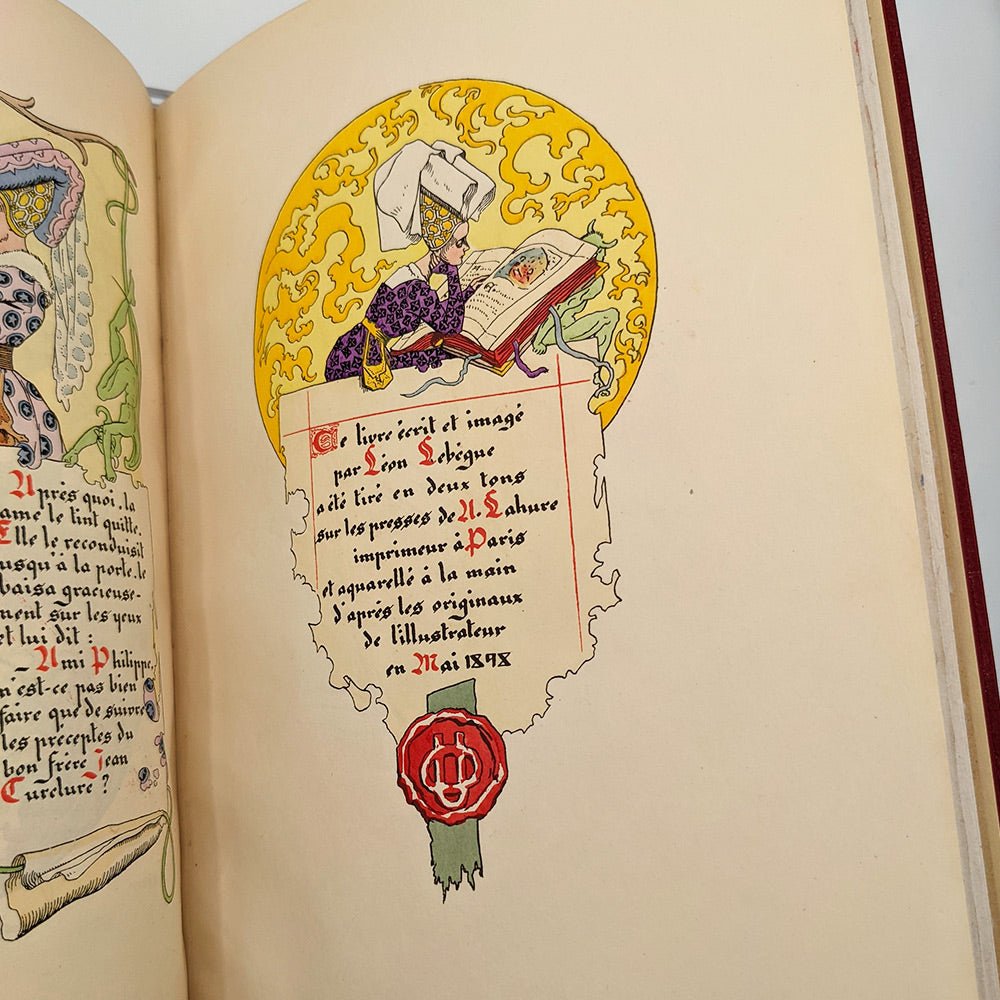 Après quoi, la
ame le tint quitte.
Elle le reconduisit
usqu'à la porte, le
baisa gracieuse-
ment sur les yeux
et lui dit :
– Ami Philippe,
n'est-ce pas bien
faire que de suivre
les préceptes du
bon frère Jean
Turelure ?
Ce livre écrit et imagé
par Léon Lebègue
a été tiré en deux tons
sur les presses de A. Lahure
imprimeur à Paris
et aquarellé à la main
d'après les originaux
de l'illustrateur
en Mai 1898